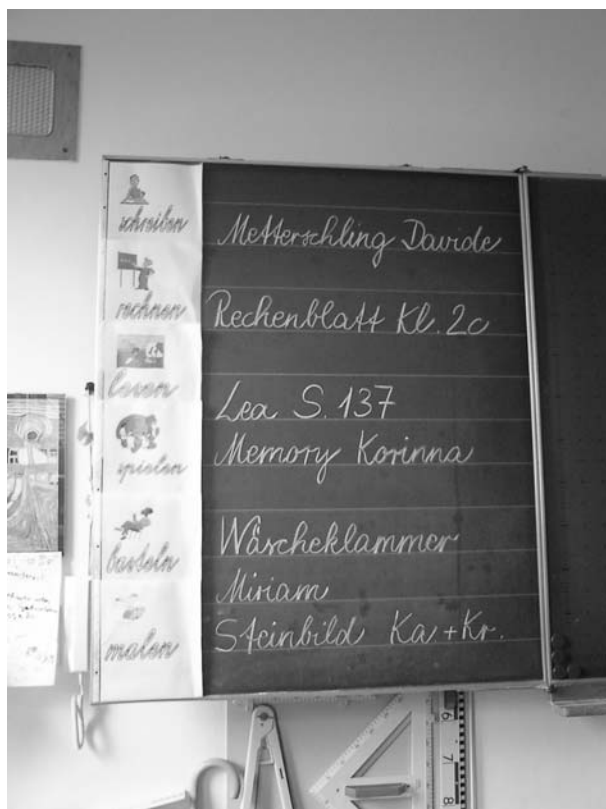 schreiben
Metterschling Davide
rechnen
Rechenblatt Kl. 2c
lesen
Lea S. 137
spielen
Memory Korinna
basteln
Wäscheklammer
Miriam
malen
Steinbild Ka + Kr.
6
7
8